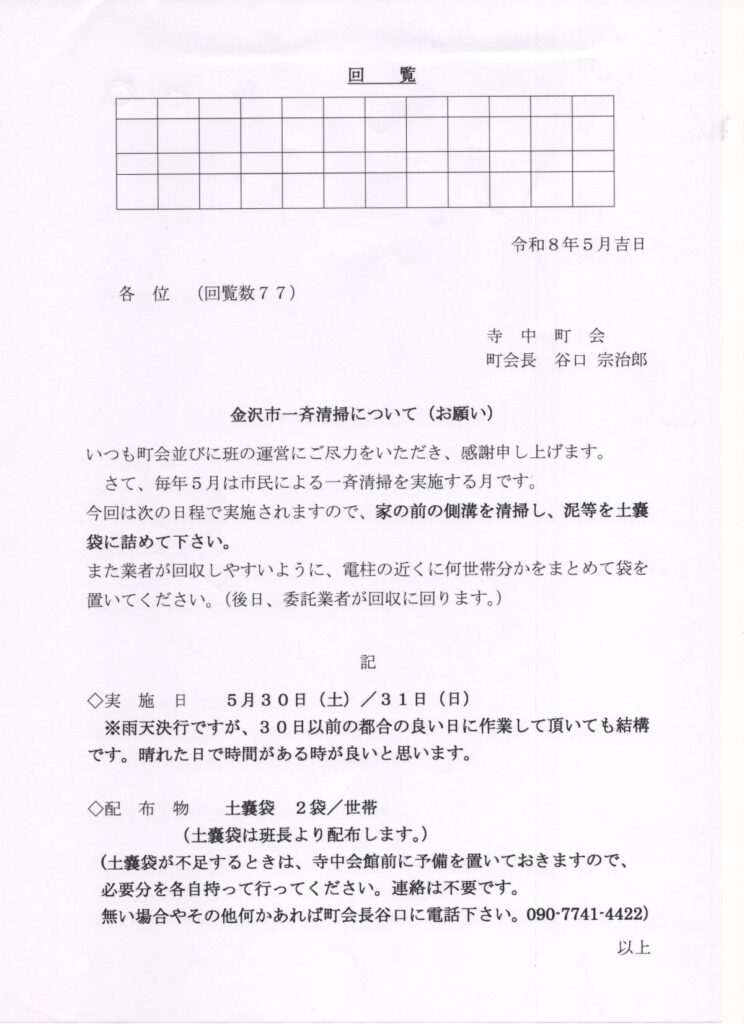 回　覧
令和８年５月吉日
各　位　（回覧数７７）
寺　中　町　会
町会長　谷口 宗治郎
金沢市一斉清掃について（お願い）
いつも町会並びに班の運営にご尽力をいただき、感謝申し上げます。
　さて、毎年５月は市民による一斉清掃を実施する月です。
今回は次の日程で実施されますので、家の前の側溝を清掃し、泥等を土嚢
袋に詰めて下さい。
また業者が回収しやすいように、電柱の近くに何世帯分かをまとめて袋を
置いてください。（後日、委託業者が回収に回ります。）
記
◇実　施　日　　５月３０日（土）／３１日（日）
　※雨天決行ですが、３０日以前の都合の良い日に作業して頂いても結構
です。晴れた日で時間がある時が良いと思います。
◇配　布　物　　土嚢袋　２袋／世帯
（土嚢袋は班長より配布します。）
（土嚢袋が不足するときは、寺中会館前に予備を置いておきますので、
必要分を各自持って行ってください。連絡は不要です。
無い場合やその他何かあれば町会長谷口に電話下さい。090-7741-4422）
以上